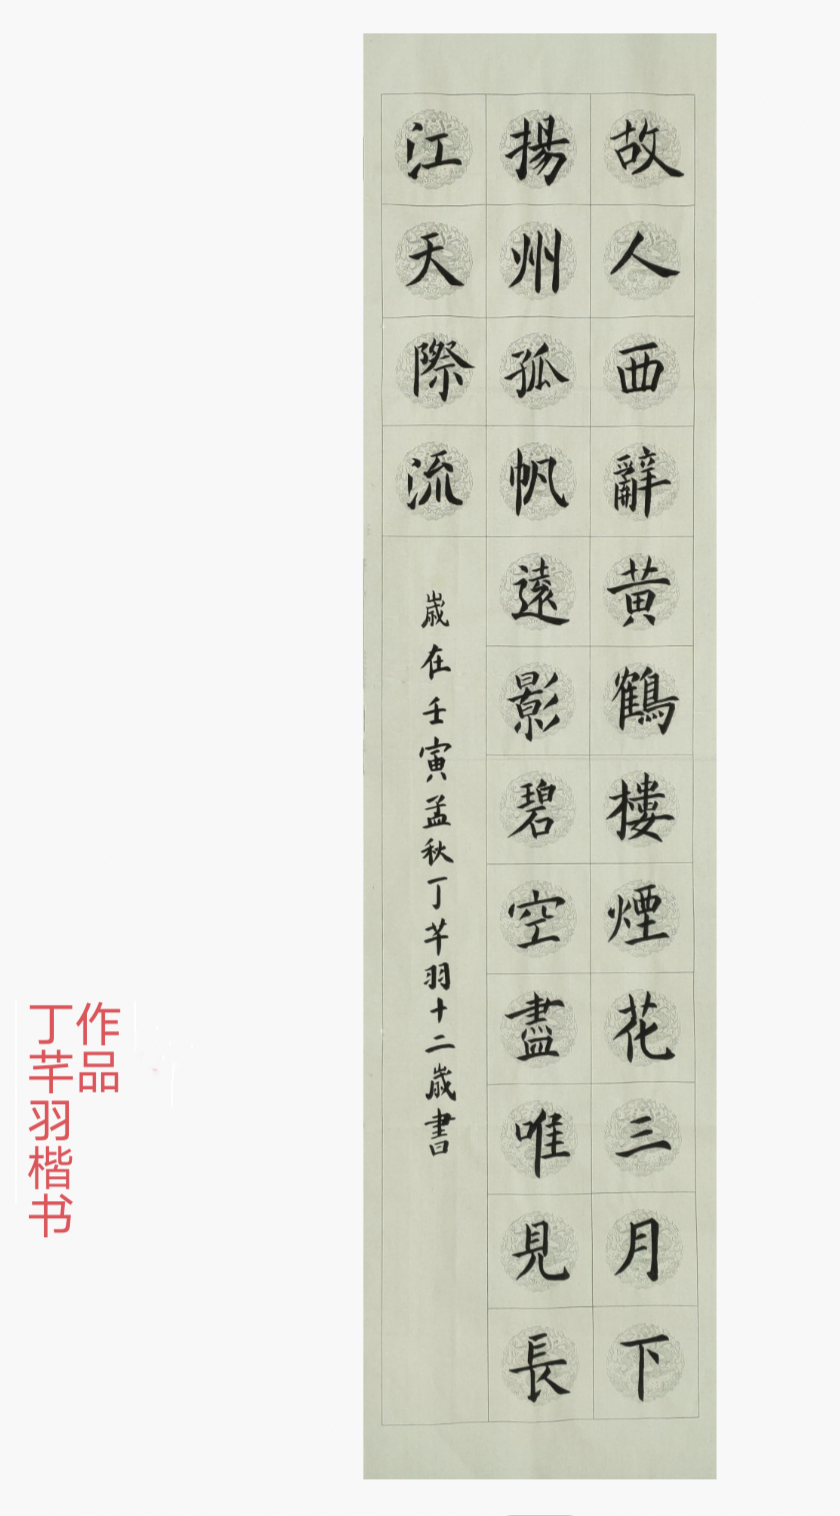 故人西辭黄鶴樓煙花三月下
揚州孤帆遠影碧空盡唯見長
江天際流
歲在壬寅孟秋丁芊羽十二歲書
作品
丁芊羽楷书